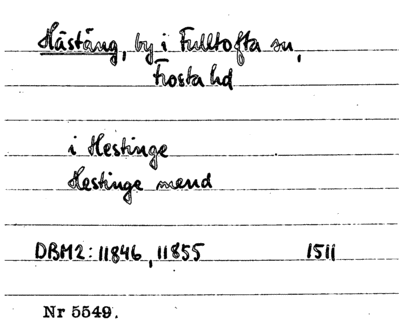 Hästäng, by i Fulltofta sn,
Frosta hd
i Hestinge
Hestinge mend
DBM2: 11846, 11855 1511
Nr 5549.